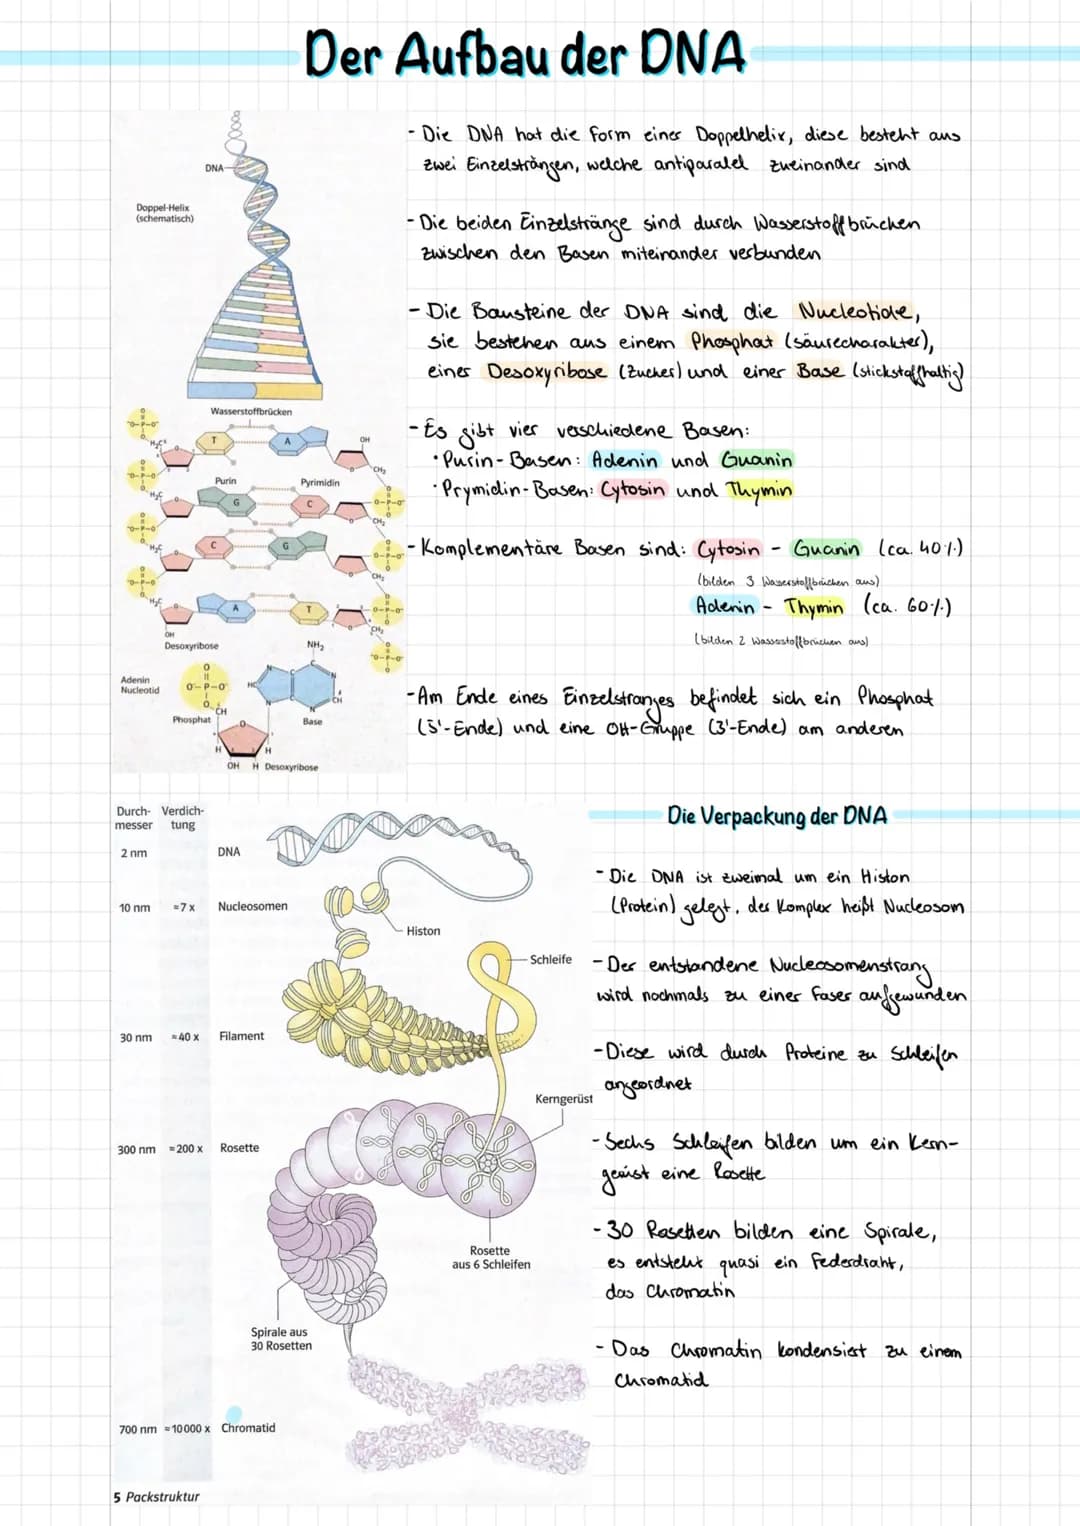 Der Aufbau der DNA
DNA
Doppel-Helix
(schematisch)
Wasserstoffbrücken
T
A
OH
Purin
Pyrimidin
G
C
C
G
A
T
OH
Desoxyribose
NH₂
Adenin
Nucleotid
Phosphat
Base
OH H Desoxyribose
- Die DNA hat die Form einer Doppelhelix, diese besteht aus
zwei Einzelsträngen, welche antiparalel zueinander sind
- Die beiden Einzelstränge sind durch Wasserstoffbrücken
zwischen den Basen miteinander verbunden
- Die Bausteine der DNA sind die Nucleotide,
sie bestehen aus einem Phosphat (säurecharakter),
einer Desoxyribose (Zucker) und einer Base (stickstoffhaltig)
- Es gibt vier verschiedene Basen:
· Purin-Basen: Adenin und Guanin
· Prymidin-Basen: Cytosin und Thymin
- Komplementäre Basen sind: Cytosin - Guanin (ca. 40%)
(bilden 3 Wasserstoffbrücken aus)
Adenin - Thymin (ca. 60%)
(bilden 2 Wasserstoffbrücken aus)
- Am Ende eines Einzelstranges befindet sich ein Phosphat
(5'-Ende) und eine OH-Gruppe (3'-Ende) am anderen
Durch- Verdich-
messer tung
2 nm DNA
10 nm ≈7 x Nucleosomen
Histon
Schleife
30 nm ≈40 x Filament
Kerngerüst
300 nm ≈200 x Rosette
Rosette
aus 6 Schleifen
Spirale aus
30 Rosetten
700 nm ≈10000 x Chromatid
5 Packstruktur
Die Verpackung der DNA
- Die DNA ist zweimal um ein Histon
(Protein) gelegt, der Komplex heißt Nucleosom
- Der entstandene Nucleosomenstrang
wird nochmals zu einer Faser aufgewunden
- Diese wird durch Proteine zu Schleifen
angeordnet
- Sechs Schleifen bilden um ein Kern-
gerüst eine Rosette
- 30 Rosetten bilden eine Spirale,
es entsteht quasi ein Federdraht,
das Chromatin
- Das Chromatin kondensiert zu einem
Chromatid